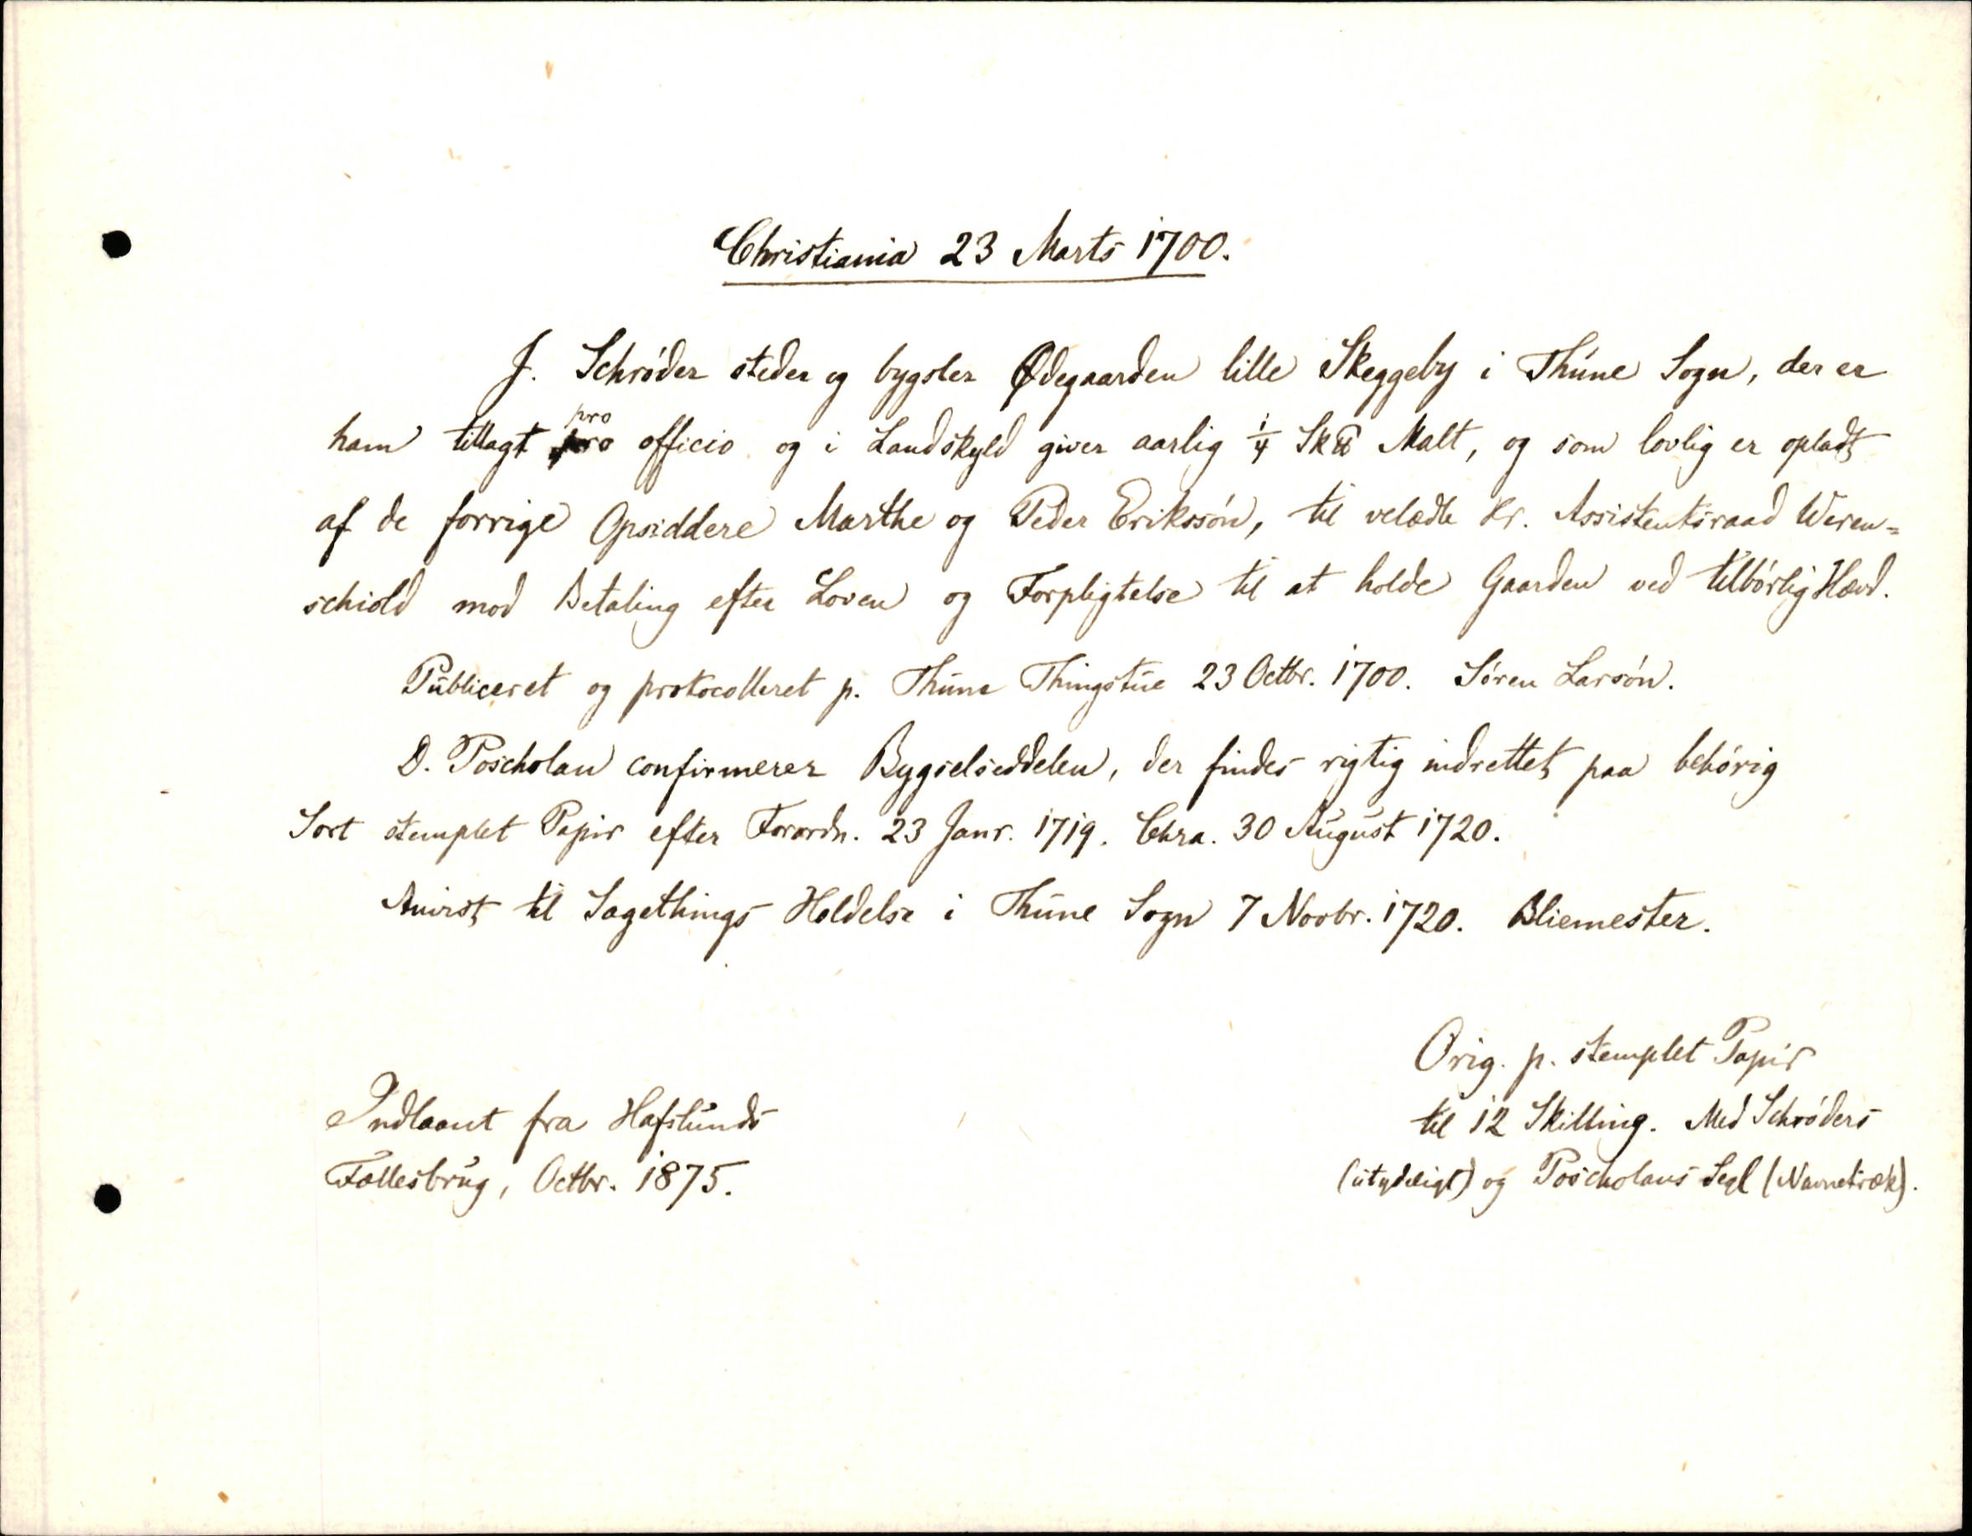 Christiania 23 Marts 1700.
J. Schrøder steder og bygsler Ødegaarden lille Skeggeby i Thune Sogn, der er
ham tillagt pro officio og i Landskyld giver aarlig 1/4 Sk℔ Malt, og som lovlig er opladt
af de forrige Opsiddere Marthe og Peder Erikssøn, til velædle Hr. Assistentsraad Weren=
schiold mod Betaling efter Loven og Forpligtelse til at holde Gaarden ved tilbørlig Hævd.
Publiceret og protocolleret p. Thune Thingstue 23 Octbr. 1700. Søren Larsøn.
D. Poscholan confirmerer Bygselseddelen, der findes rigtig indrettet paa behørig
Sort stemplet Papir efter Forordn. 23 Janr. 1719. Chra. 30 August 1720.
Anvist til Sagethings Holdelse i Thune Sogn 7 Novbr. 1720. Bliemester.
Orig. p. stemplet Papir
til 12 Skilling. Med Schrøders
(utydeligt) og Poscholans Segl (Navnetræk).
Indlaant fra Hafslunds
Fællesbrug, Octbr. 1875.